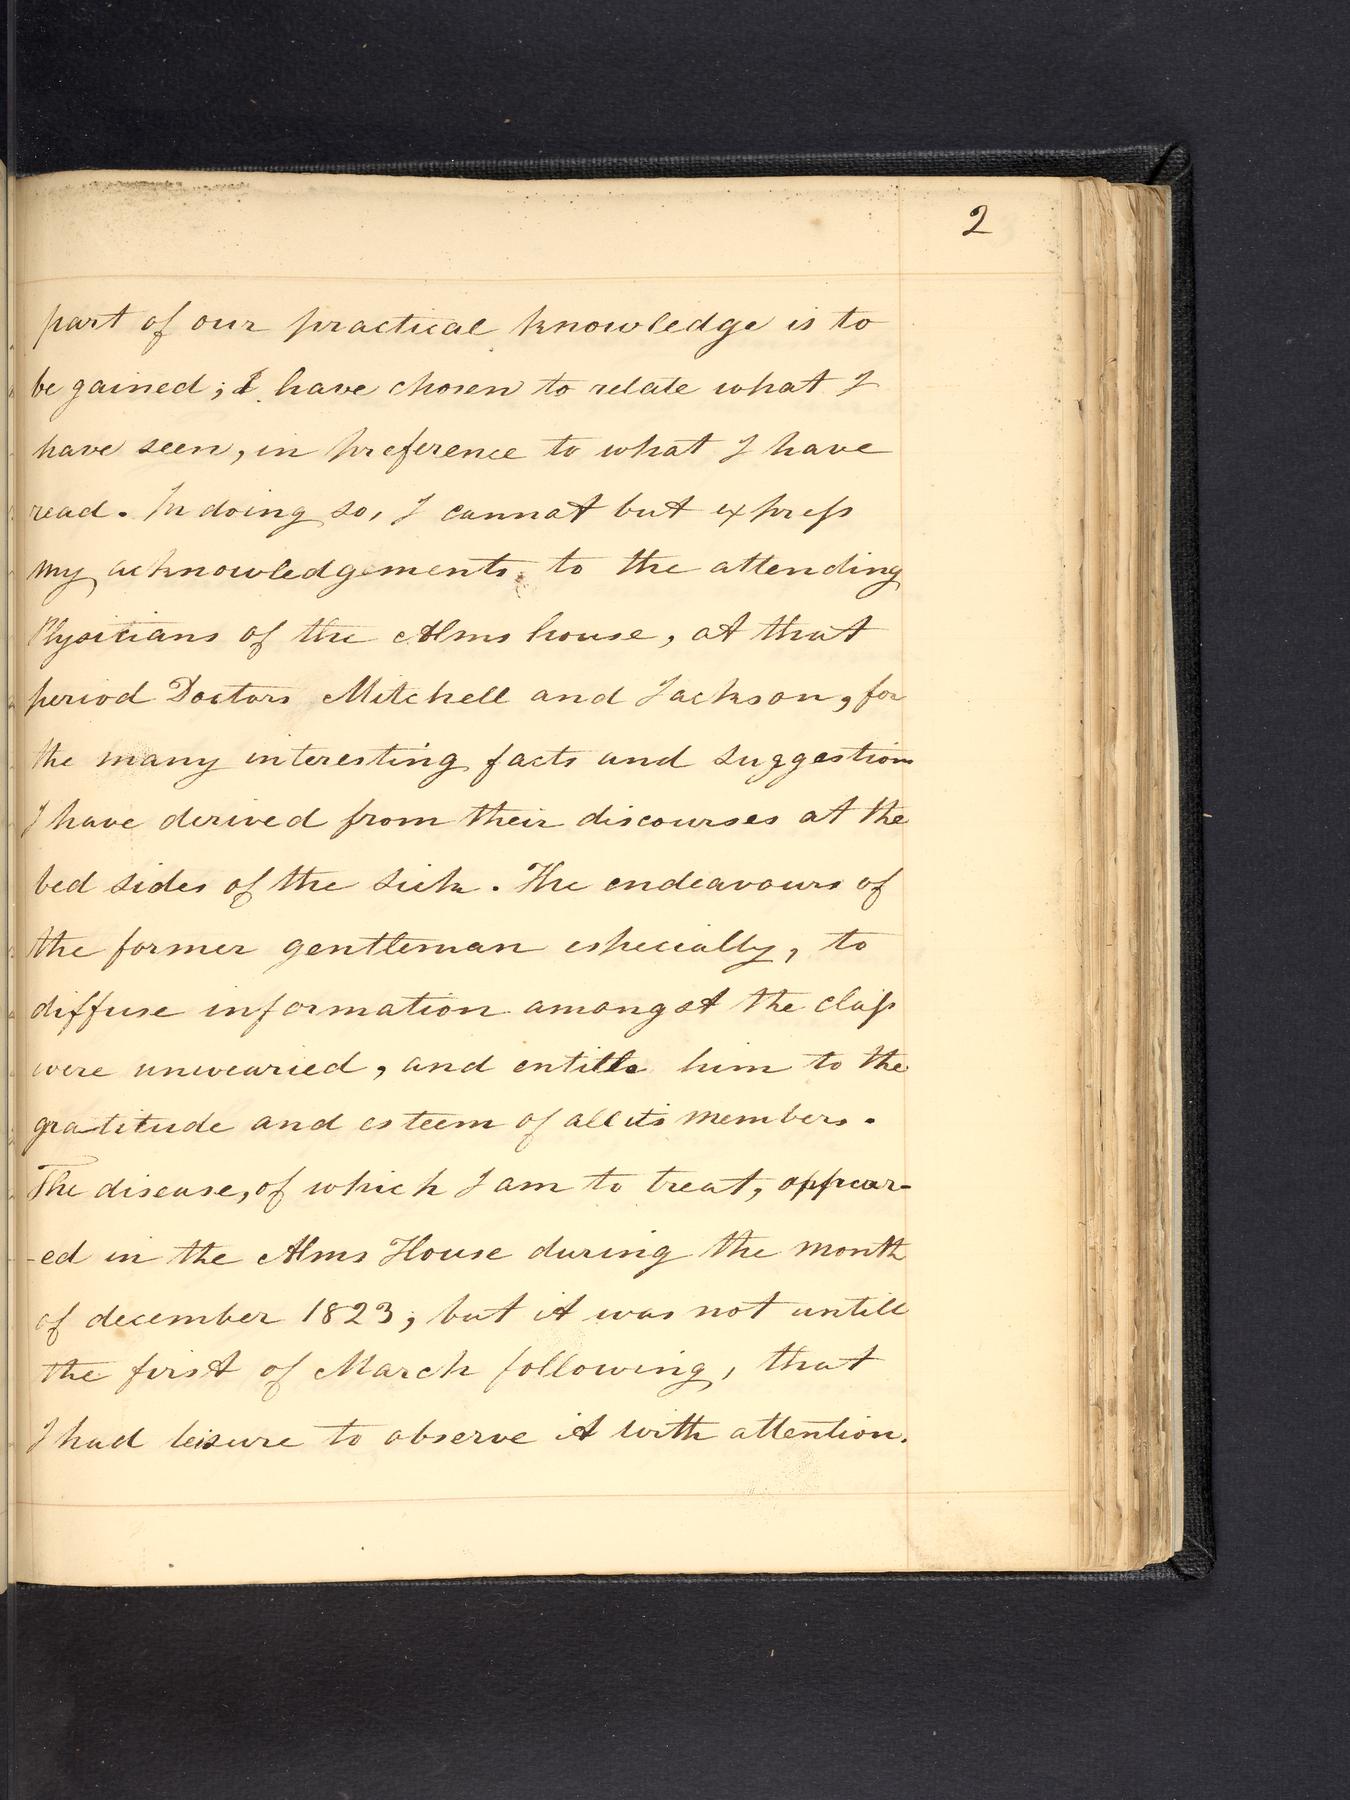 2
part of our practical knowledge is to
be gained; I have chosen to relate what I
have seen, in preference to what I have
read. In doing so, I cannot but express
my acknowledgements to the attending
Physitians of the Alms house, at that
period Doctors Mitchell and Jackson, for
the many interesting facts and suggestions
I have derived from their discourses at the
bed sides of the sick. The endeavours of
the former gentleman especially, to
diffuse information amongst the class
were unwearied, and entitle him to the
gratitude and esteem of all its members.
The disease, of which I am to treat, appear-
-ed in the Alms House during the month
of december 1823; but it was not untill
the first of March following, that
I had leisure to observe it with attention.